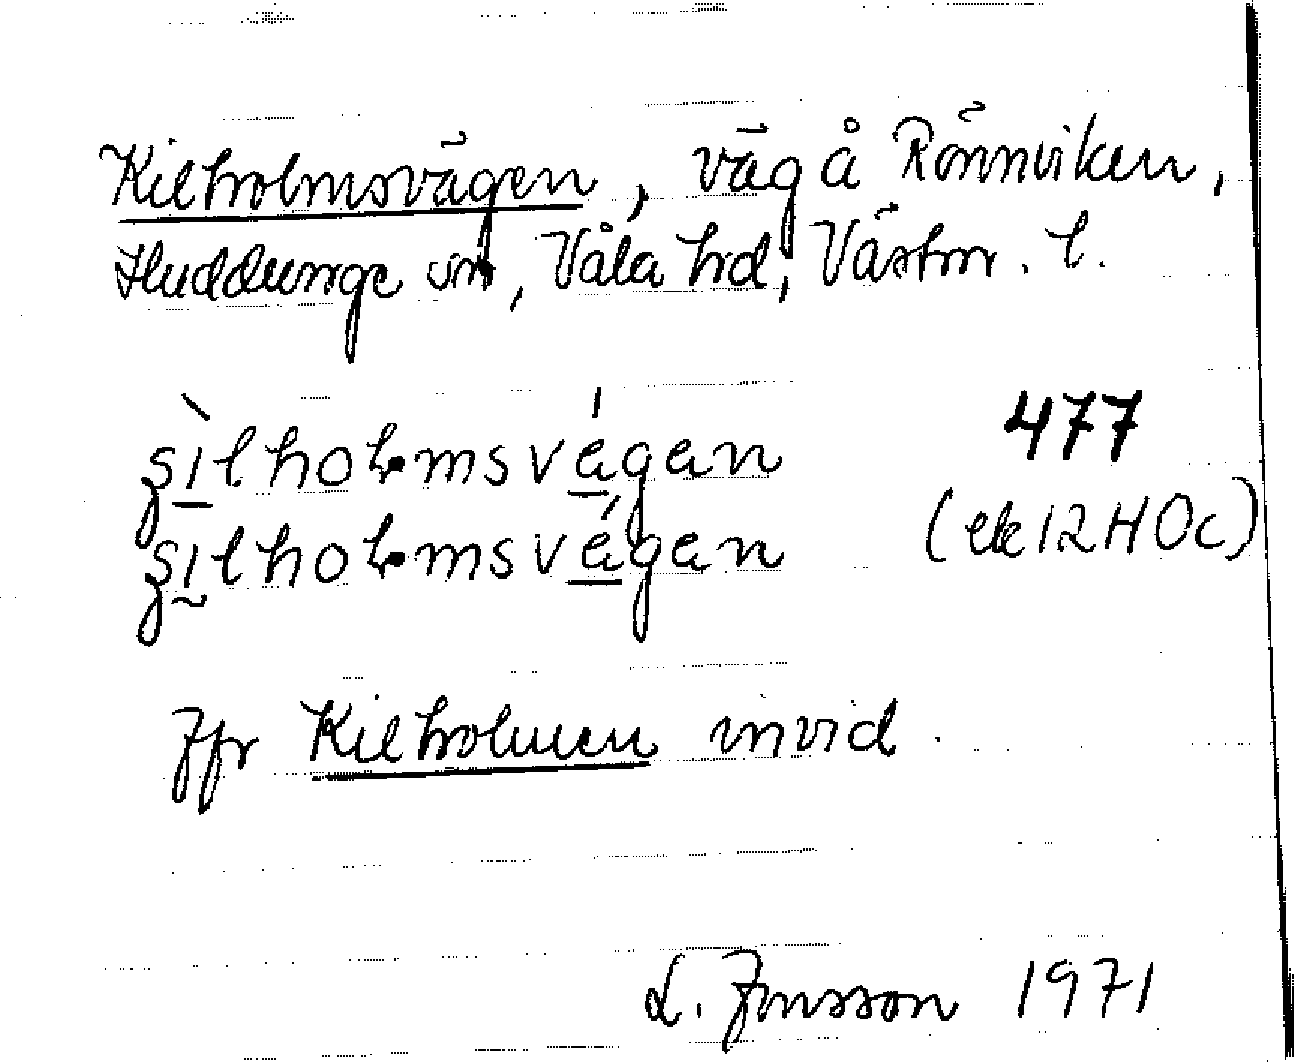 Kilholmsvägen, väg å Rönnviken,
Huddunge sn, Våla hd, Västm. l.
ʒìlhoɬmsvégan 477
ʒılhoɬmsvégan (ek 12H0c)
Jfr Kilholmen invid.
L. Jonsson 1971